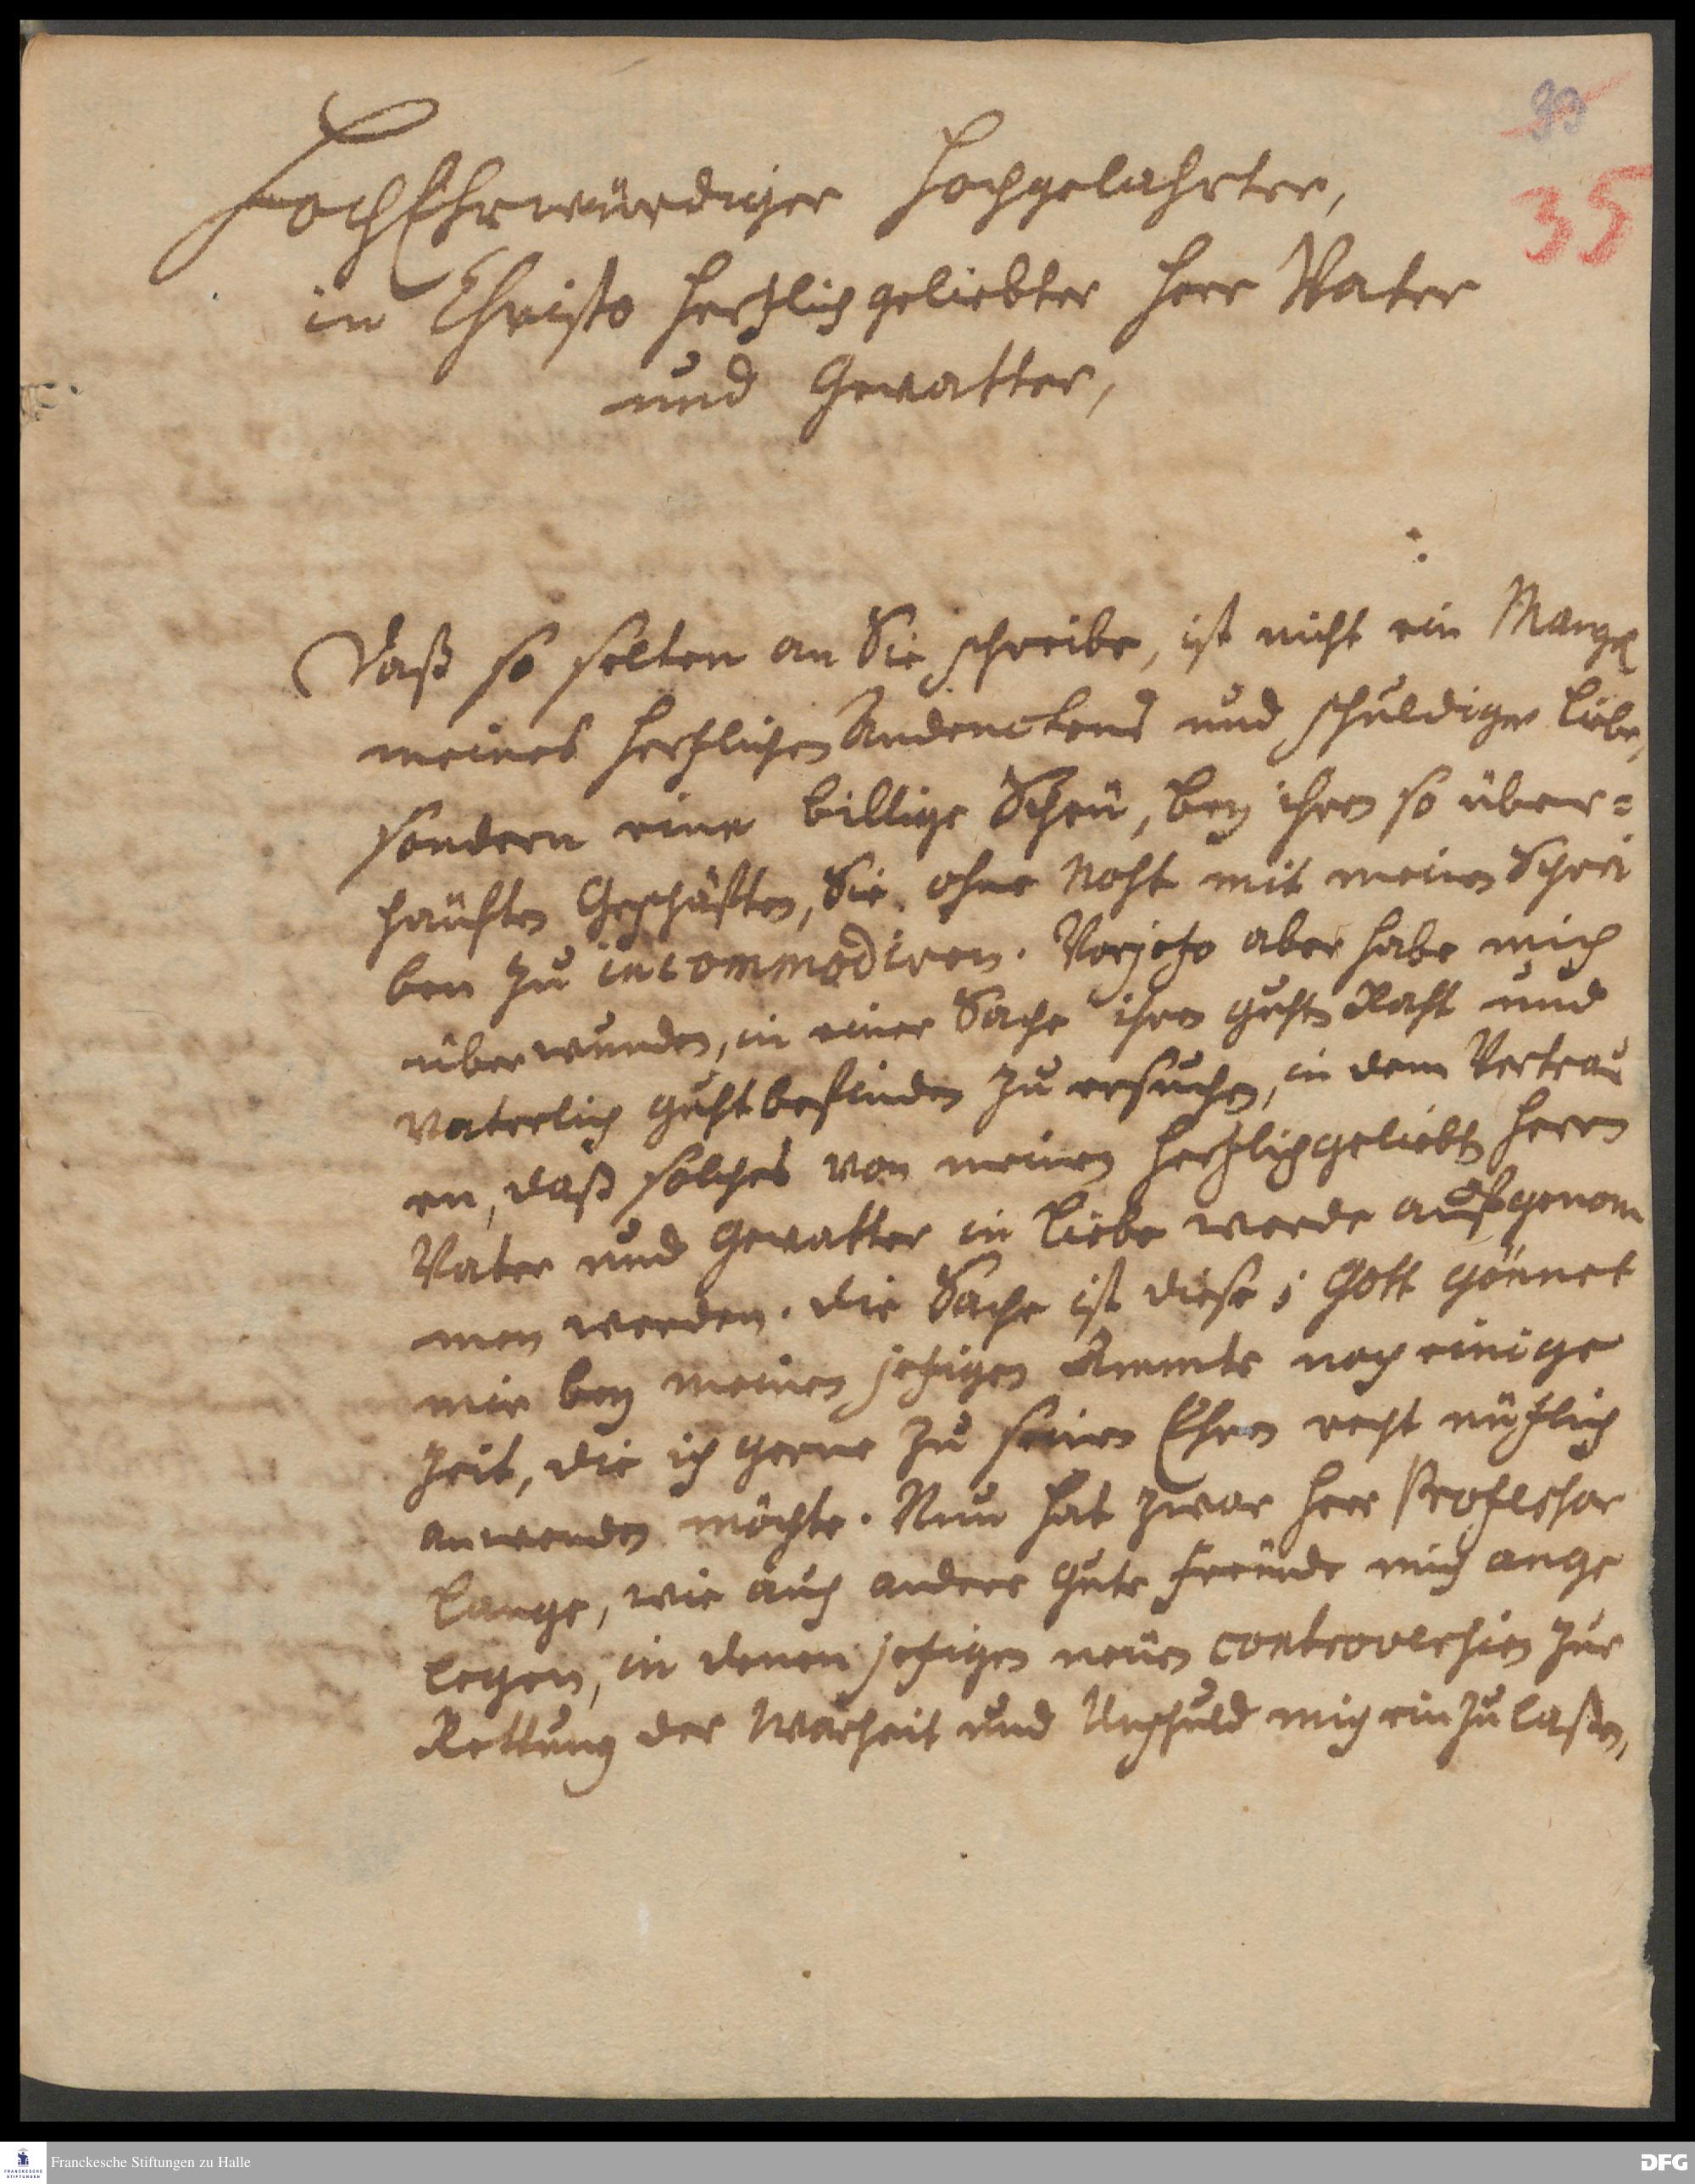 39
35
HochEhrwürdiger Hochgelahrter,
in Christo hertzlich geliebter Herr Vater
und Gevatter,
Daß so selten an Sie schreibe, ist nicht ein Mangel
meines hertzlichen Andenckens und schuldiger Liebe,
sondern eine billige Scheü, bey ihren so über=
häuften Geschäften, Sie ohne Noht mit meinen Schrei
ben zu incommodiren. Vorjetzo aber habe mich
überwunden, in einer Sache ihren guhten Raht und
vaterlich guhtbefinden zu ersuchen, in dem Vertrau
en, daß solches von meinen hertzlichgeliebten Herrn
Vater und Gevatter in Liebe werde aufgenom
men werden. Die Sache ist diese; Gott gönnet
mir bey meinen jetzigen Ammte noch einige
Zeit, die ich gerne zu seinen Ehren recht nützlich
anwenden möchte. Nun hat zwar Herr Professor
Lange, wie auch andere gute Freünde mich ange
legen, in denen jetzigen neüen controversien zur
Rettung der Warheit und Unschuld mich einzulaßen,
Franckesche Stiftungen zu Halle
FRANCKESCHE
STIFTUNGEN
DFG